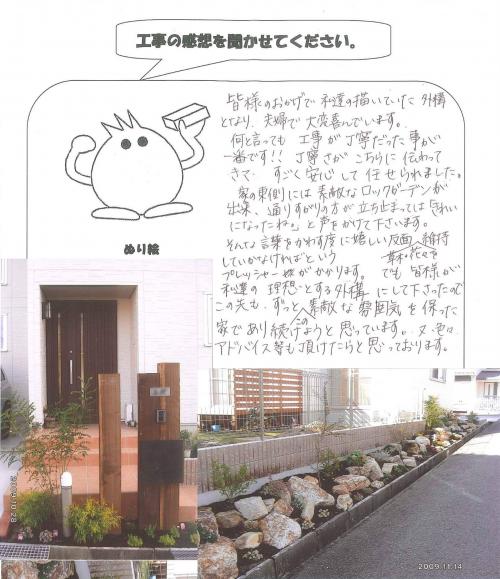 工事の感想を聞かせてください。
皆様のおかげで私達の描いていた外構
となり、夫婦で大変喜んでいます。
何と言っても工事が丁寧だった事が
一番です!! 丁寧さがこちらに伝わって
きて、すごく安心して任せられました。
家の東側には素敵なロックガーデンが
出来、通りすがりの方が立ち止まっては「きれい
になったね。」と声をかけて下さいます。
そんな言葉をかわす度に嬉しい反面、維持
していかなければという
草木・花々を
プレッシャーもかかります。でも皆様が
私達の理想とする外構にして下さったので
この先も、ずっと素敵な雰囲気を保った
この
家であり続けようと思っています。又、色々
アドバイス等も頂けたらと思っております。
ぬり絵
2009.10.28
2009.11.14